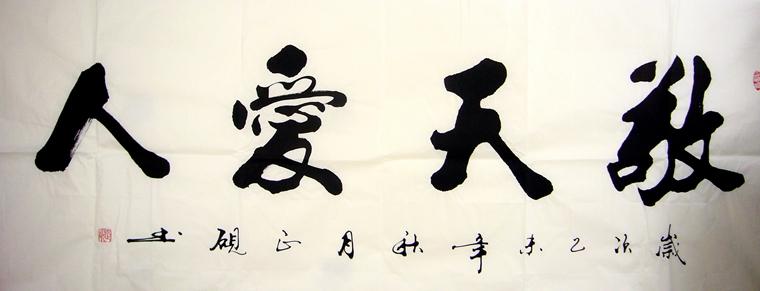 敬天愛人
歲次乙未年秋月正硯书